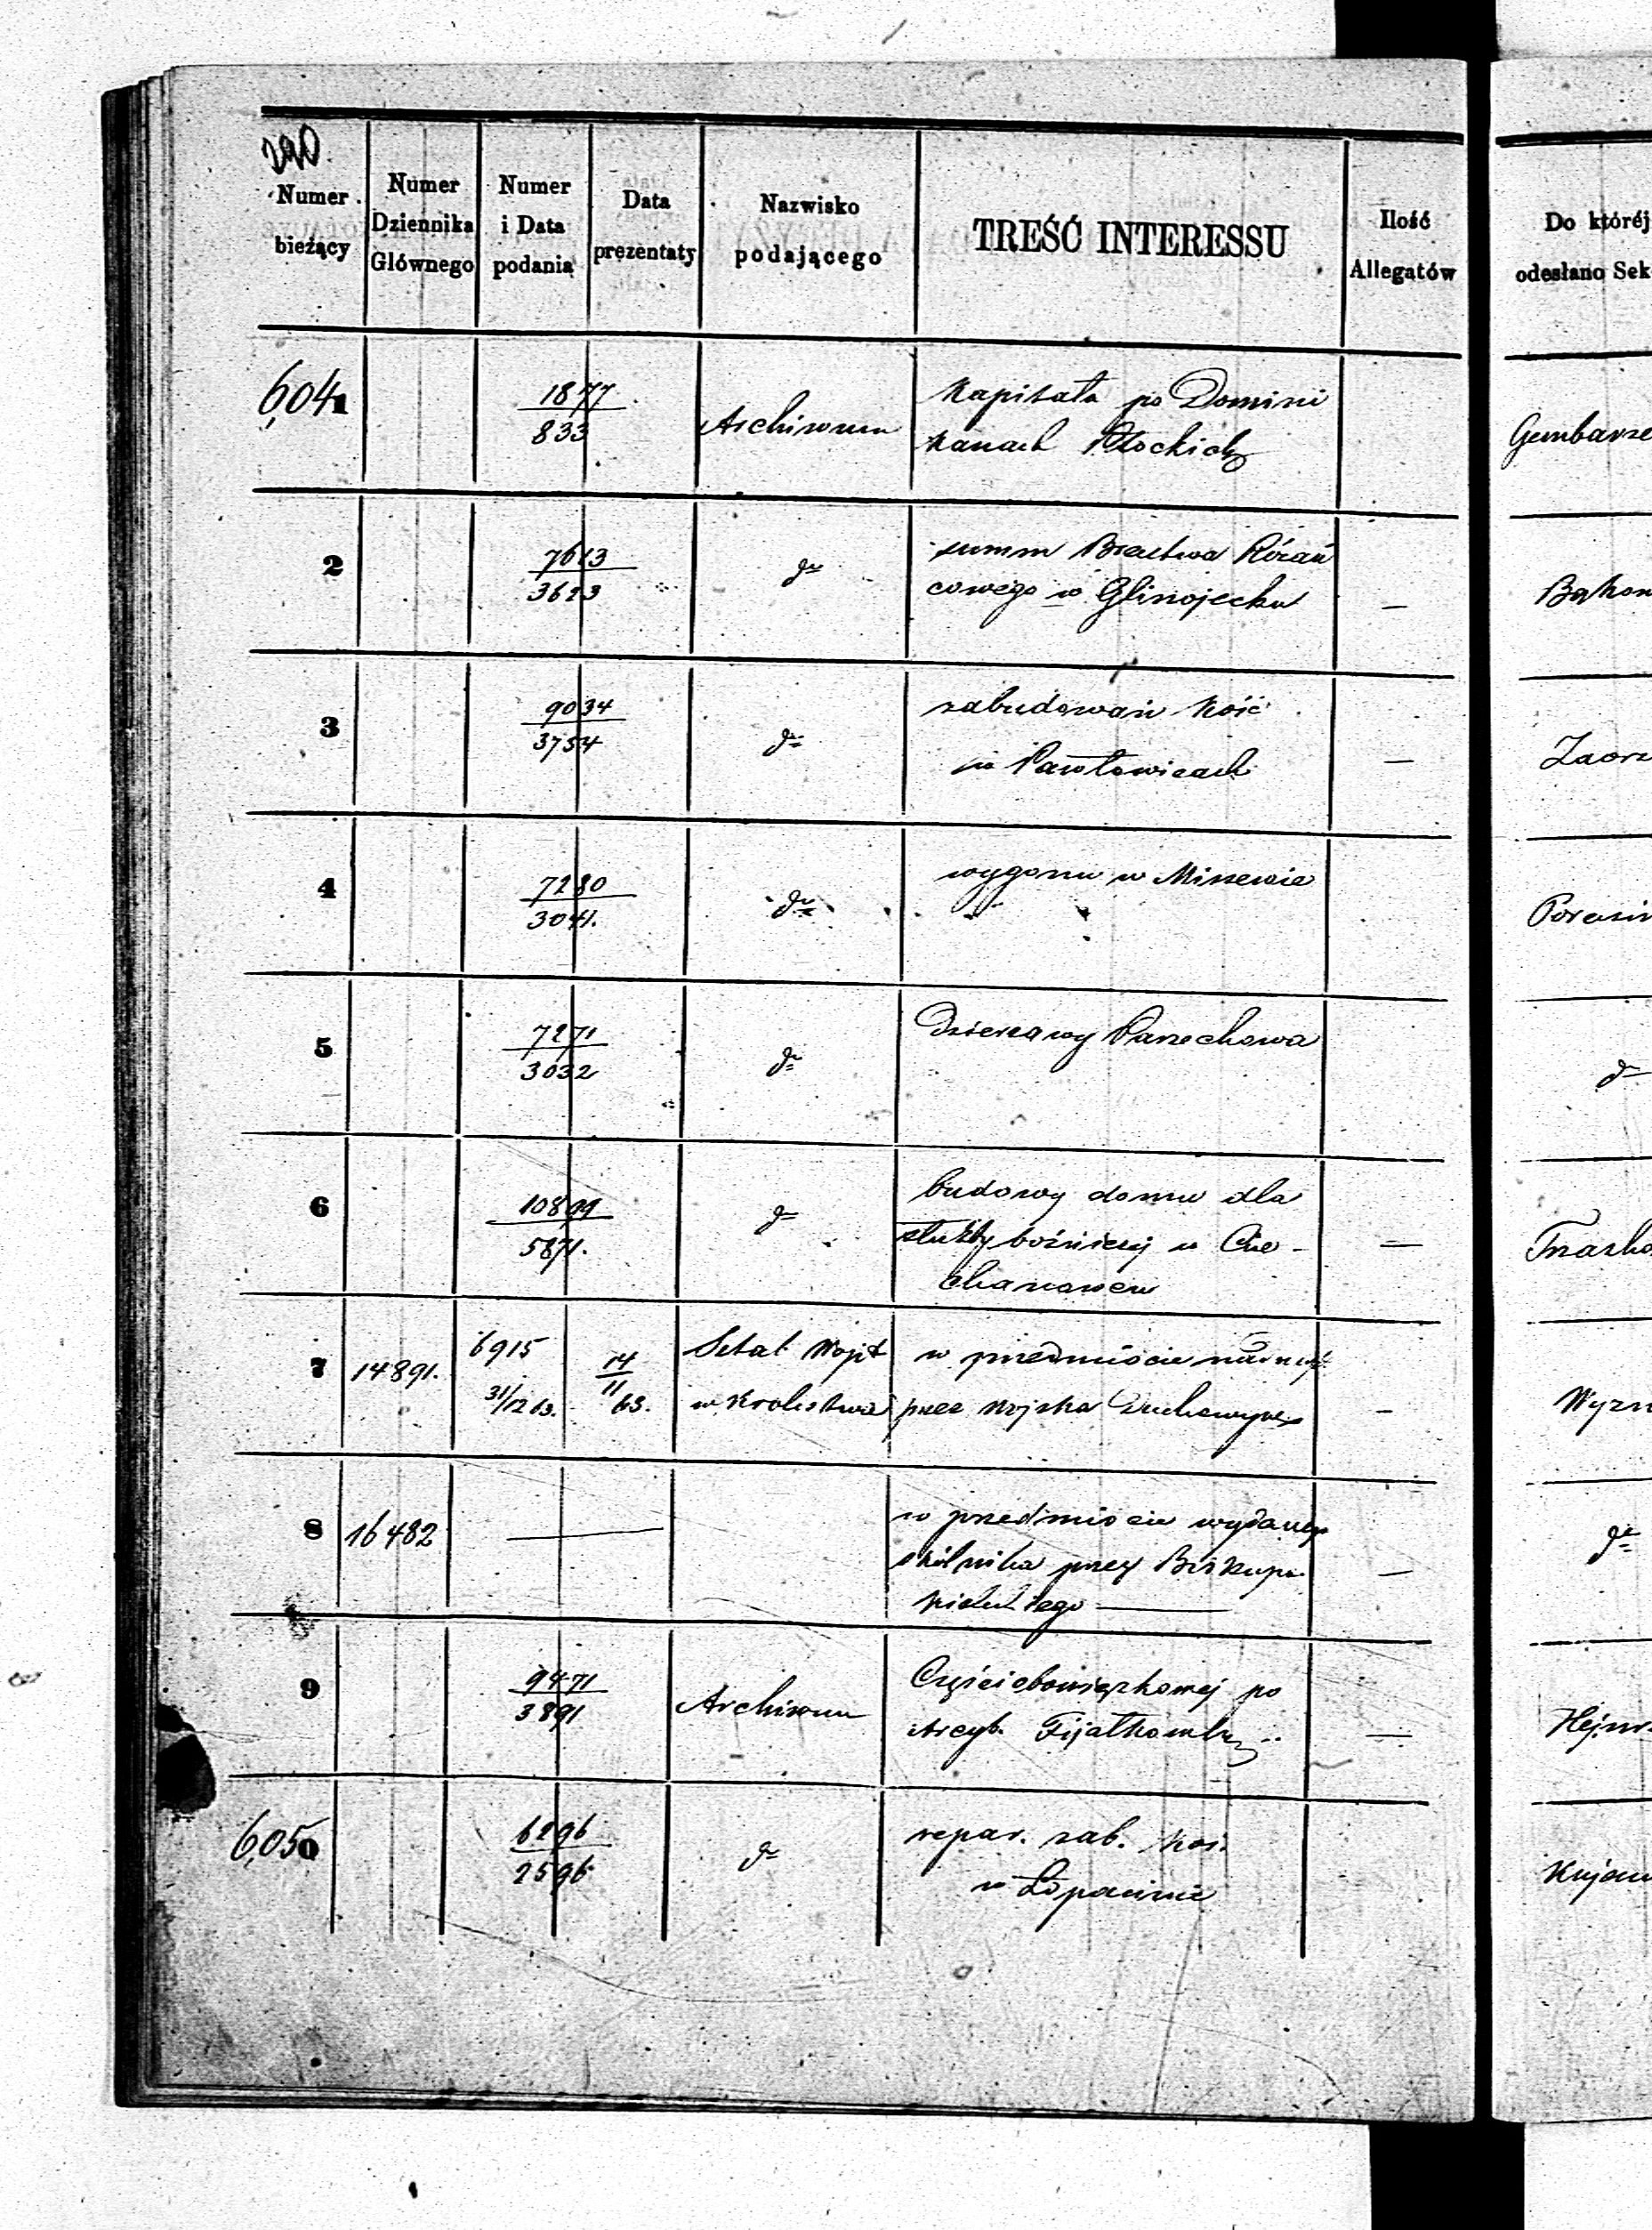 290.
Numer bieżący
Numer Dziennika Głównego
Numer i Data podania
Data prezentaty
Nazwisko podającego
TREŚĆ INTERESSU
Ilość Allegatów
Do któréj odesłano Sek
6,041
1877
833
Archiwum
Kapitała po Domini
kanach Płockich
Gembarze
2
7613
3623
do
summ Bractwa Różań
cowego w Glinojecku
—
Bąkow
3
9034
3754
do
zabudowań Kość
w Pawłowicach
—
Zaorz
4
7280
3041.
do
wygonu w Miszewie
5
7271
3032
do
Dzierżawy Parzechowa
do
6
10899
5871.
do
budowy domu dla
służby bóźniczej w Cie-
chanowcu
—
7
14891.
6915
31/12 63.
14/11 63.
Sztab Wojsk
w Królestwie
w przedmiocie
przez Wojska Duchownych
—
8
16482
—
w przedmiocie
przez Biskupa
—
do
9
9471
3891
Archiwum
Części obowiązkowej po
Arcyb. Fijałkowskim
—
6,050
6296
2596
do
repar. zab. Koś.
w Łopacinie
Kujaw